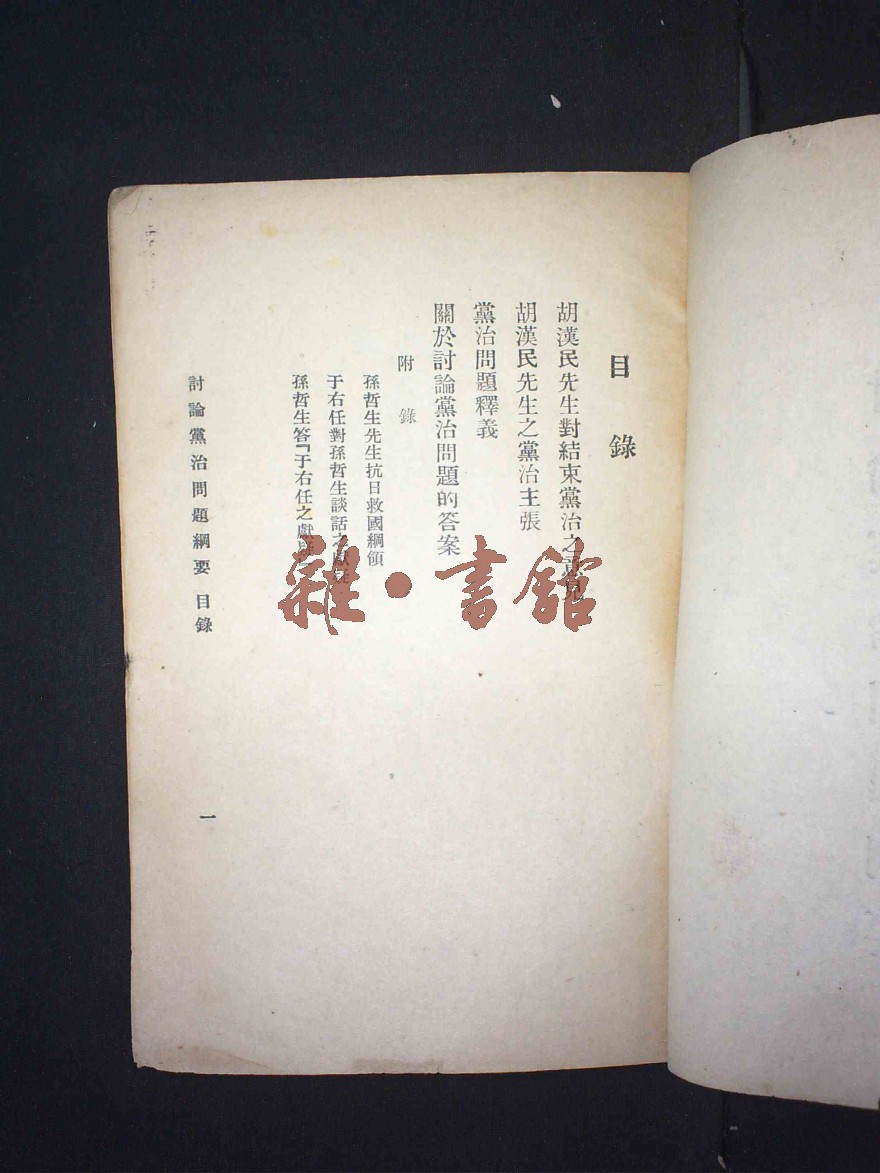 目錄
胡漢民先生對結束黨治之意見
胡漢民先生之黨治主張
黨治問題釋義
關於討論黨治問題的答案
附錄
孫哲生先生抗日救國綱領
于右任對孫哲生談話之獻疑
孫哲生答「于右任之獻疑
討論黨治問題綱要 目錄
一
雜·書館